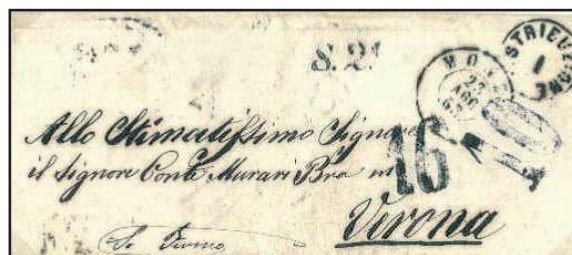 S. 2!
STRIBUZIONE
1
23
AGO
Allo Stimatissimo Signore
il Signore Conte Murari Bra in
16 10
Verona
S. Fermo